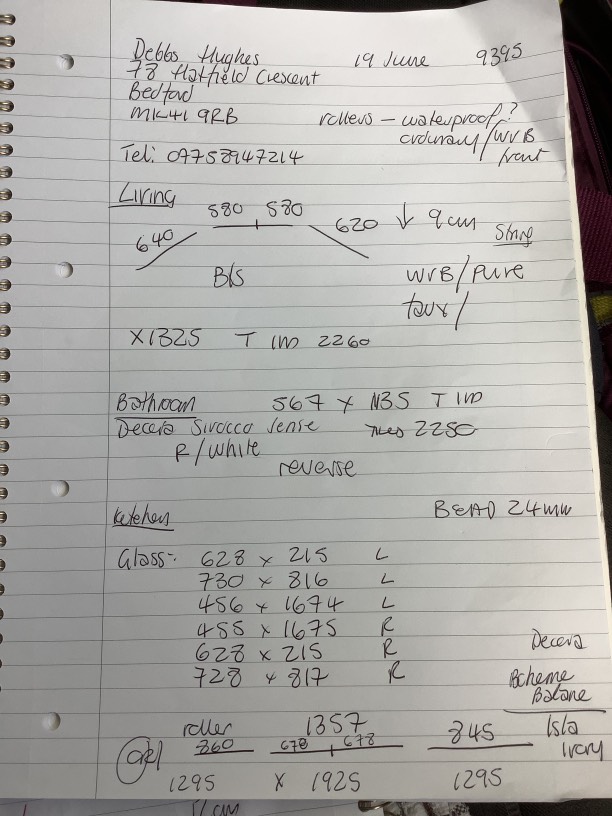 Debbs Hughes 19 June 9395
78 Hatfield Crescent
Bedford
MK41 9RB rollers - waterproof?
ordinary/WVB
front
Tel: 07758947214
Living
580 580
640 620 ↓ 9cm
String
B/S WVB/Pure
X1325 T IM 2260
Bathroom 567 x T IM
Decera Sirocco Sense 2250
R/White
reverse
Kitchen BEAD 24mm
Glass:- 628 x 215 L
730 x 816 L
456 x 1674 L
455 x 1675 R
628 x 215 R
728 x 817 R
Decera
roller 1357
860 678 678 845
Isla
Ivory
1295 X 1925 1295